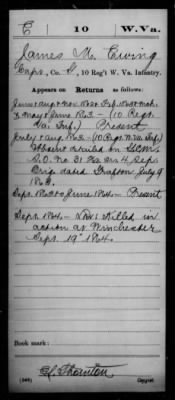 E | 10 | W. Va.
James M. Ewing
Capt., Co. F, 10 Reg't W. Va. Infantry.
Appears on Returns as follows:
& May & June 1863 — (10 Regt.
Va. Inf.) Present
July & Aug 1863 — (10 Regt. W. Va. Inf.)
Absent detailed on G.C.M.
S.O. No. 31 Hd Qrs 4 Sep.
Brig dated Grafton July 9
1863.
Sept. 1863 to June 1864 — Present
Sept. 1864 — Killed in
action at Winchester
Sept. 19" 1864.
Book mark:
Thornton
Copyist.